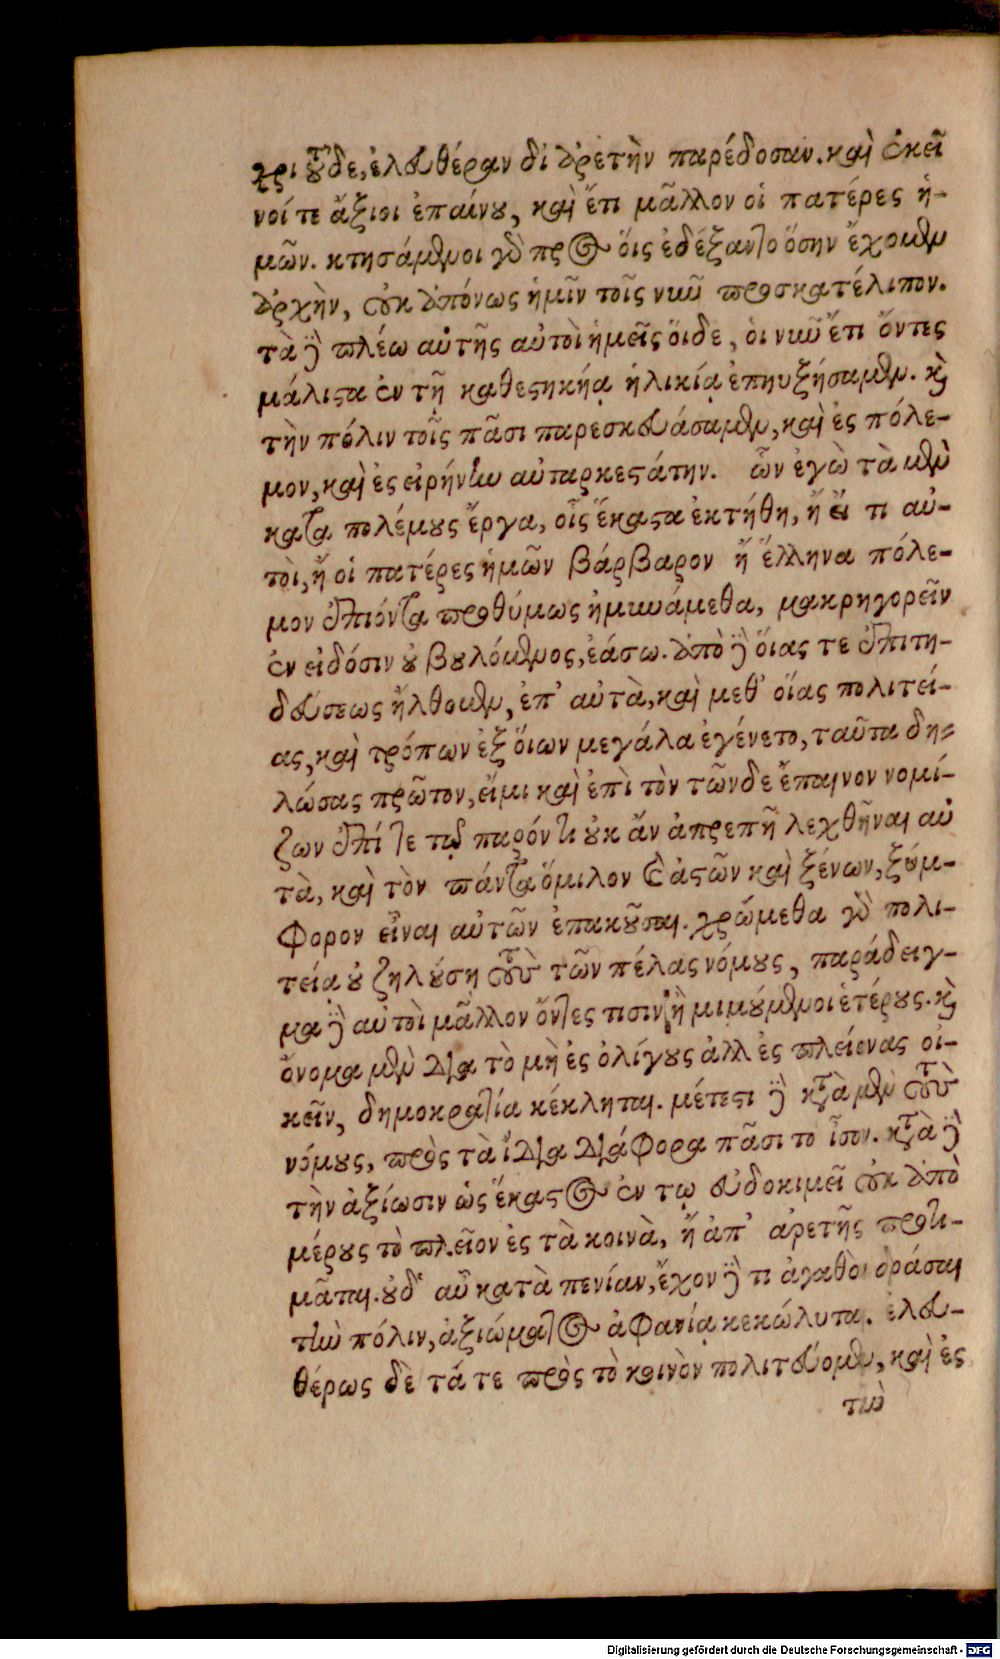 χρι τοῦδε, ἐλευθέραν δι' ἀρετὴν παρέδοσαν. καὶ ἐκεῖ
νοί τε ἄξιοι ἐπαίνου, καὶ ἔτι μᾶλλον οἱ πατέρες ἡ-
μῶν. κτησάμενοι γὰρ πρὸς οἷς ἐδέξαντο ὅσην ἔχομεν
ἀρχὴν, οὐκ ἀπόνως ἡμῖν τοῖς νῦν προσκατέλιπον.
τὰ δὲ πλέω αὐτῆς αὐτοὶ ἡμεῖς οἵδε, οἱ νῦν ἔτι ὄντες
μάλιστα ἐν τῇ καθεστηκυίᾳ ἡλικίᾳ ἐπηυξήσαμεν. καὶ
τὴν πόλιν τοῖς πᾶσι παρεσκευάσαμεν, καὶ ἐς πόλε-
μον, καὶ ἐς εἰρήνην αὐταρκεστάτην. ὧν ἐγὼ τὰ μὲν
κατα πολέμους ἔργα, οἷς ἕκαστα ἐκτήθη, ἢ εἴ τι αὐ-
τοὶ, ἢ οἱ πατέρες ἡμῶν βάρβαρον ἢ ἕλληνα πόλε-
μον ἐπιόντα προθύμως ἠμυνάμεθα, μακρηγορεῖν
ἐν εἰδόσιν οὐ βουλόμενος, ἐάσω. ἀπὸ δὲ οἵας τε ἐπιτη-
δεύσεως ἤλθομεν, ἐπ' αὐτὰ, καὶ μεθ' οἵας πολιτεί-
ας, καὶ τρόπων ἐξ οἵων μεγάλα ἐγένετο, ταῦτα δη-
λώσας πρῶτον, εἶμι καὶ ἐπὶ τὸν τῶνδε ἔπαινον νομί-
ζων ἐπί τε τῷ παρόντι οὐκ ἂν ἀπρεπῆ λεχθῆναι αὐ
τὰ, καὶ τὸν πάντα ὅμιλον καὶ ἀστῶν καὶ ξένων, ξύμ-
φορον εἶναι αὐτῶν ἐπακοῦσαι. χρώμεθα γὰρ πολι-
τείᾳ οὐ ζηλούσῃ τοὺς τῶν πέλας νόμους, παράδειγ-
μα δὲ αὐτοὶ μᾶλλον ὄντες τισὶν ἢ μιμούμενοι ἑτέρους. καὶ
ὄνομα μὲν δια τὸ μὴ ἐς ὀλίγους ἀλλ ἐς πλείονας οἰ-
κεῖν, δημοκρατία κέκληται. μέτεστι δὲ κατὰ μὲν τοὺς
νόμους, πρὸς τὰ ἴδια διάφορα πᾶσι το ἶσον. κατὰ δὲ
τὴν ἀξίωσιν ὡς ἕκαστος ἐν τῳ εὐδοκιμεῖ οὐκ ἀπὸ
μέρους τὸ πλεῖον ἐς τὰ κοινὰ, ἢ ἀπ' ἀρετῆς προτι-
μᾶται. οὐδ' αὖ κατὰ πενίαν, ἔχον δὲ τι ἀγαθὸν δράσαι
τὴν πόλιν, ἀξιώματος ἀφανίᾳ κεκώλυται. ἐλευ-
θέρως δὲ τά τε πρὸς τὸ κοινὸν πολιτεύομεν, καὶ ἐς
τὴν
Digitalisierung gefördert durch die Deutsche Forschungsgemeinschaft - DFG